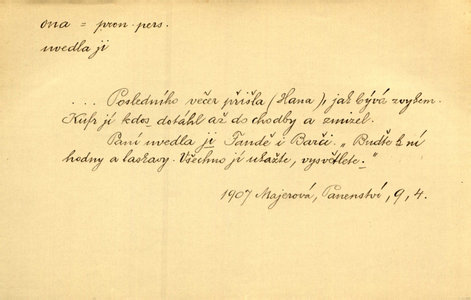 ona = pron. pers.
uvedla ji
... Posledního večer přišla (Hana), jak bývá zvykem.
Kufr jí kdos dotáhl až do chodby a zmizel.
Paní uvedla ji Tandě i Barči. „Buďte k ní
hodny a laskavy. Všechno jí ukažte, vysvětlete."
1907 Majerová, Panenství, 9, 4.